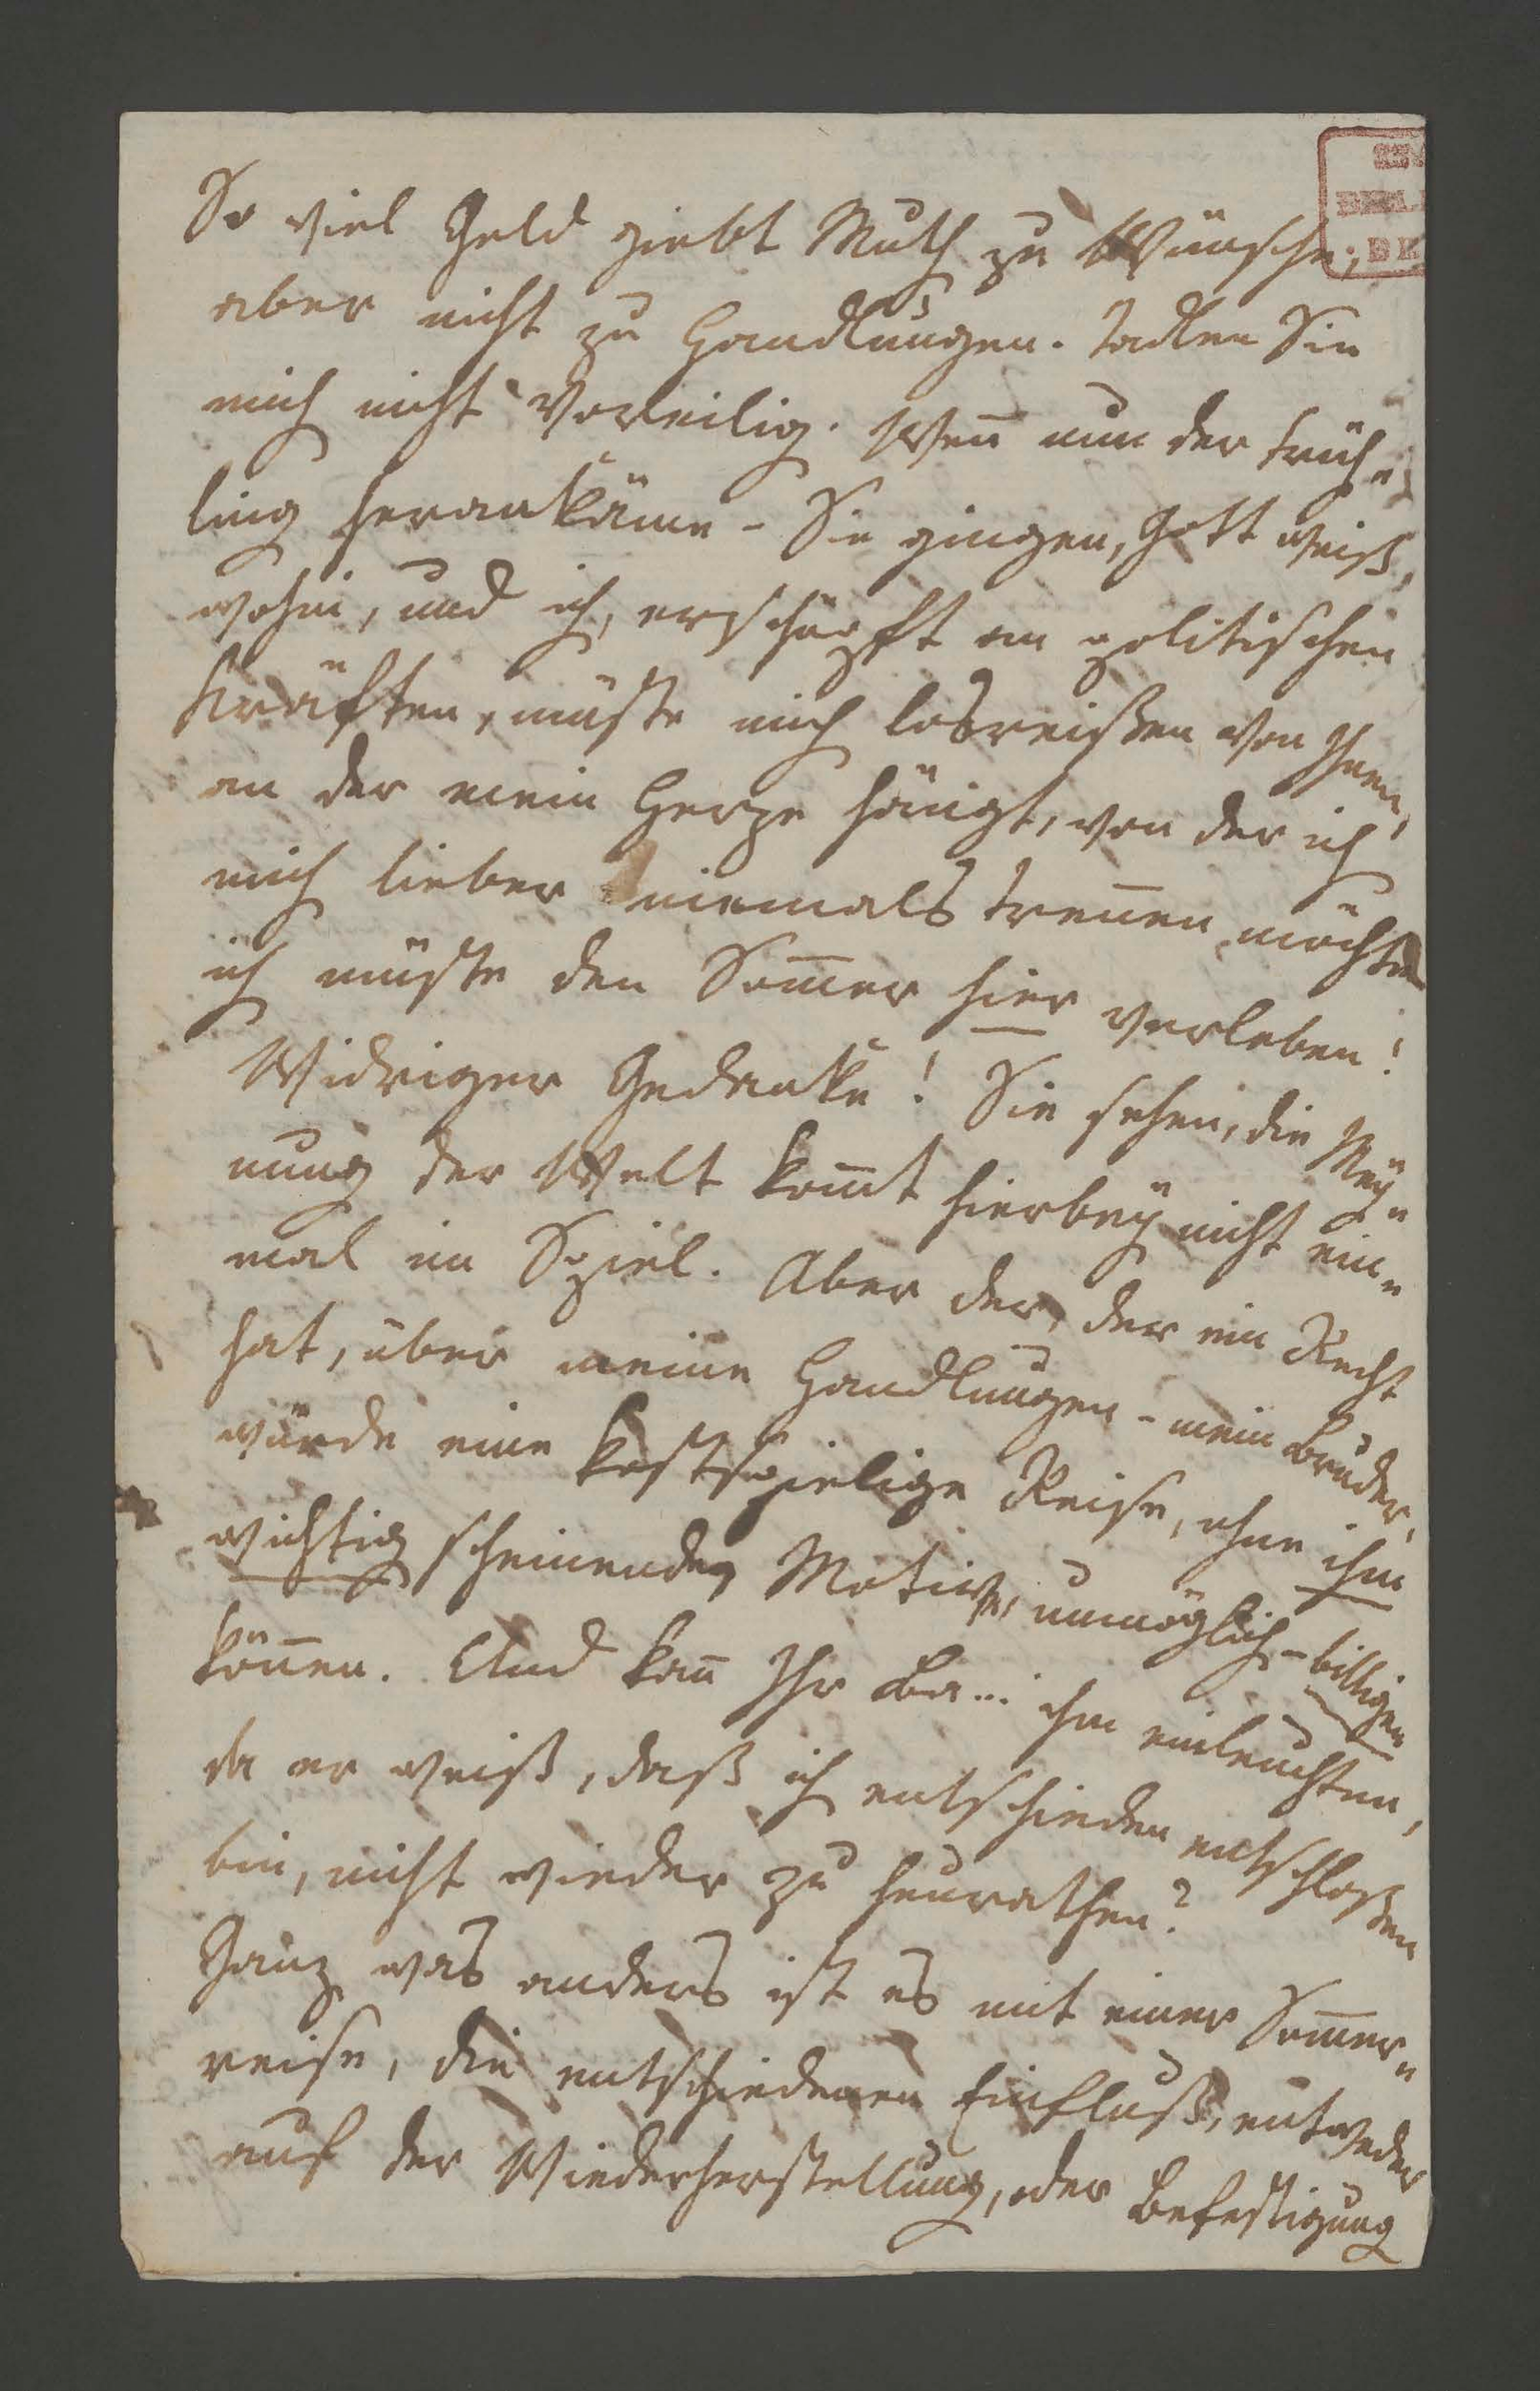 So viel Geld giebt Muth zu Wünsche,
aber nicht zu Handlungen. Tadlen Sie
mich nicht voreilig. Weñ nun der Früh-
ling herankäme - Sie gingen, Gott weiß,
wohin, und ich, erschöpft an politischen
Kräften, müste mich losreißen von Ihnen,
an der mein Herze hängt, von der ich
mich lieber niemals treñen möchte
ich müste den Som̄er hier verleben!
Widriger Gedanke! Sie sehen, die Mey-
nung der Welt kom̄t hierbey nicht ein-
mal in Spiel. Aber der, der ein Recht
hat, über meine Handlungen - mein Bruder,
würde eine kostspielige Reise, ohne ihm
wichtig scheinende, Motive, unmöglich - billigen
köñen. Und kañ Ihr Ba... ihm einleuchten,
da er weiß, daß ich entschieden entschloßen
bin, nicht wieder zu heurathen?
Ganz was anders ist es mit einer Som̄er-
reise, die entschiedenen Einfluß, entweder
auf der Wiederherstellung, oder Befestigung